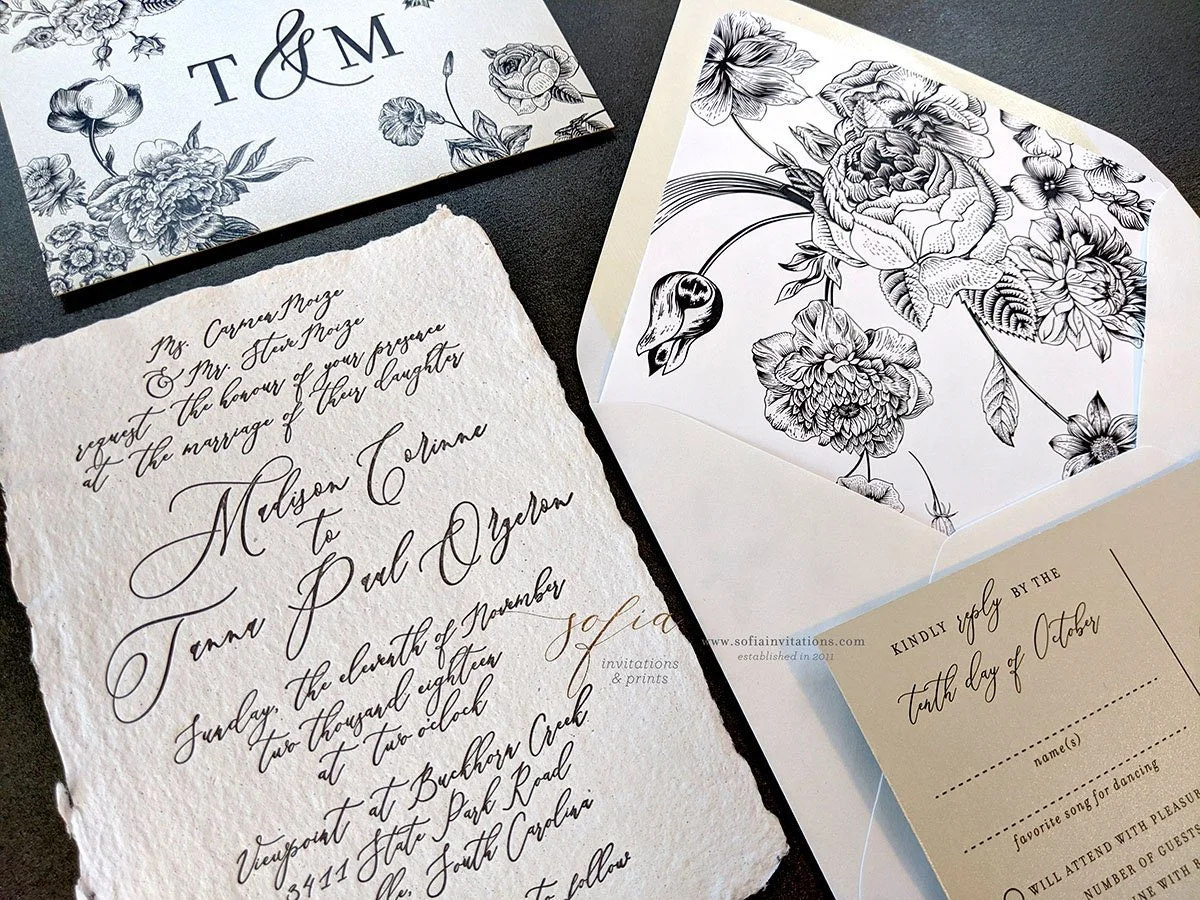 T & M
Ms. Carmen Moize
& Mr. Steve Moize
request the honour of your presence
at the marriage of their daughter
Madison Corinne
to
Tanna Paul Orgeron
Sunday, the eleventh of November
two thousand eighteen
at two o'clock
Viewpoint at Buckhorn Creek
3411 State Park Road
lle, South Carolina
to follow
sofia
invitations
& prints
www.sofiainvitations.com
established in 2011
KINDLY reply BY THE
tenth day of October
name(s)
favorite song for dancing
WILL ATTEND WITH PLEASUR
NUMBER OF GUESTS
INE WITH R